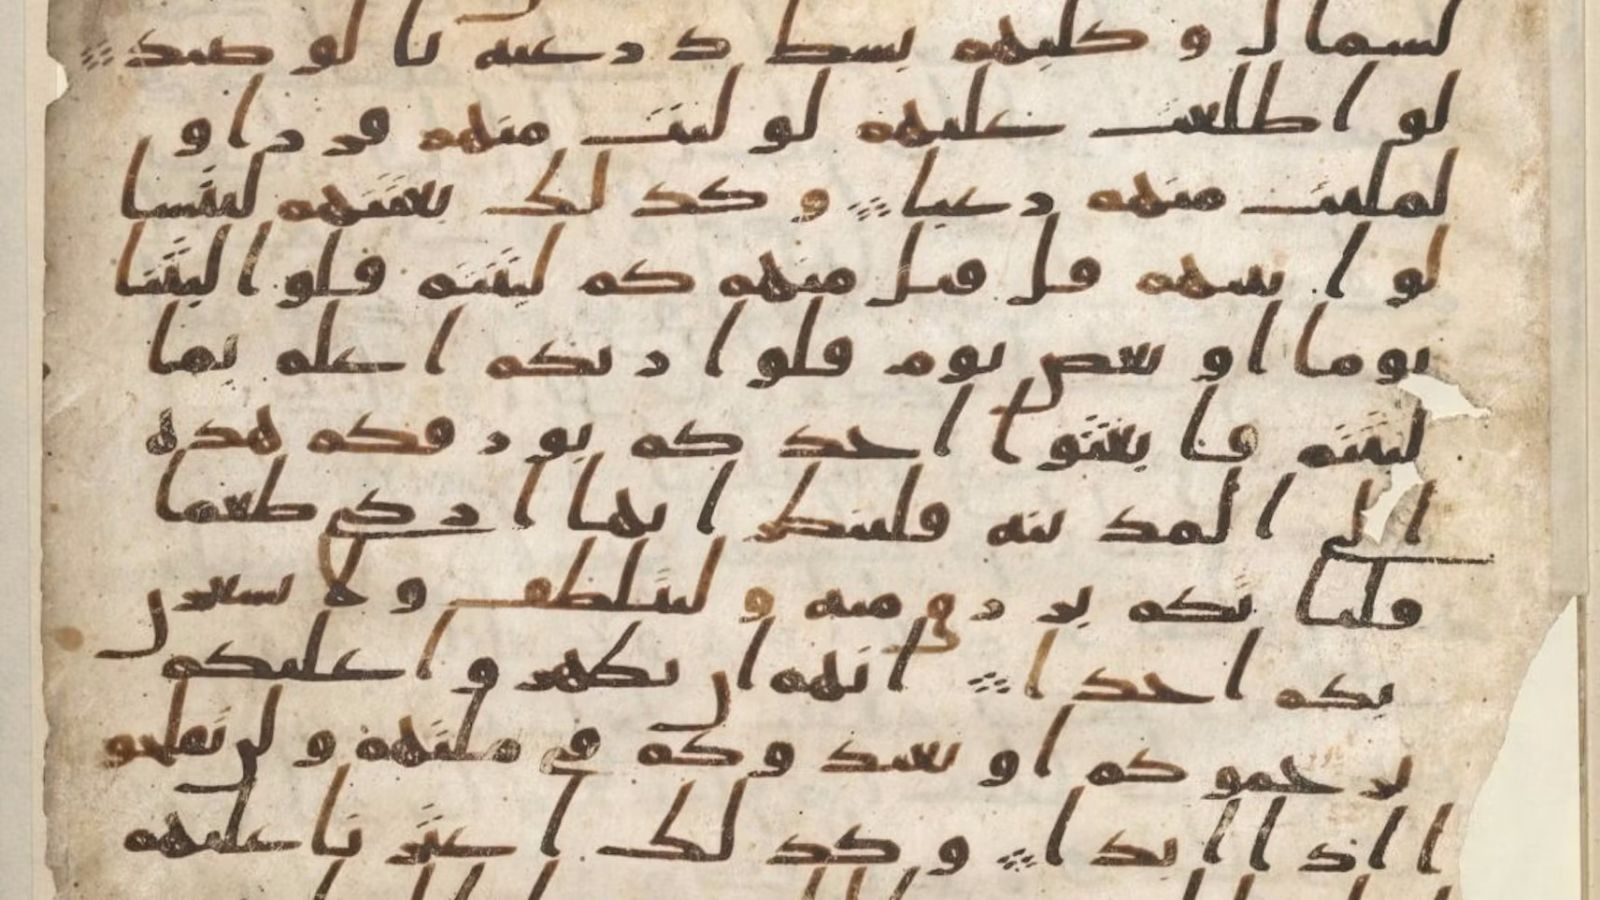 لسمال و كلبهم بسط ذرعيه بالوصيد
لو اطلعت عليهم لوليت منهم فرارا و
لملئت منهم رعبا و كذلك بعثنهم ليتسا
لوا بينهم قل قىل منهم كم لبثتم قلوا لبثنا
يوما او بعض يوم قلوا ربكم اعلم بما
لبثتم فابعثوا احدكم بورقكم هذه
الى المدينه فلينظر ايها ازكى طعما
فلياتكم برزق منه و ليتلطف و لا يشعرن
بكم احدا انهم ان يظهروا عليكم
يرجموكم او يعيدوكم في ملتهم و لن تفلحو
ا اذا ابدا و كذلك اعثرنا عليهم